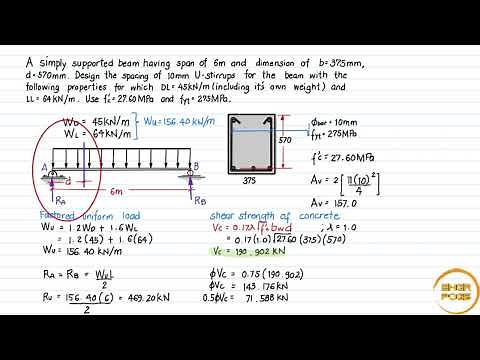 A simply supported beam having span of 6m and dimension of b=375mm,
d=570mm. Design the spacing of 10mm U-stirrups for the beam with the
following properties for which DL=45kN/m (including it's own weight) and
LL=64kN/m. Use f'c=27.60MPa and fyt=275MPa.
WD = 45kN/m
WL = 64kN/m
Wu=156.40kN/m
A
B
d
6m
RA
RB
570
375
ϕbar = 10mm
fyt = 275MPa
f'c = 27.60MPa
Av = 2[π(10)²/4]
Av = 157.0
Factored uniform load
Wu = 1.2WD + 1.6WL
= 1.2(45) + 1.6(64)
Wu = 156.40 kN/m
RA = RB = WuL/2
Ru = 156.40(6)/2 = 469.20kN
shear strength of concrete
Vc = 0.17λ√f'c bwd ; λ = 1.0
= 0.17(1.0)√27.60 (375)(570)
Vc = 190.902 kN
ϕVc = 0.75(190.902)
ϕVc = 143.176kN
0.5ϕVc = 71.588 kN
ENGR
POGS